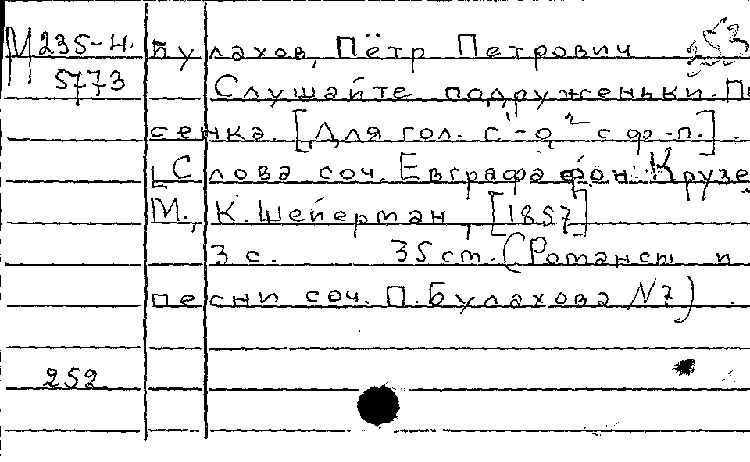 М 235-Н. Булахов, Пётр Петрович 253
5773 Слушайте подруженьки. Пе
сенка. [Для гол. с "-о,² с ф.-п.].
[Слова соч. Евграфа фон. Крузе
М., К. Шейерман, [1857]
3 с. 35 ст. (Романсы и
песни соч. П. Булахова N7).
252